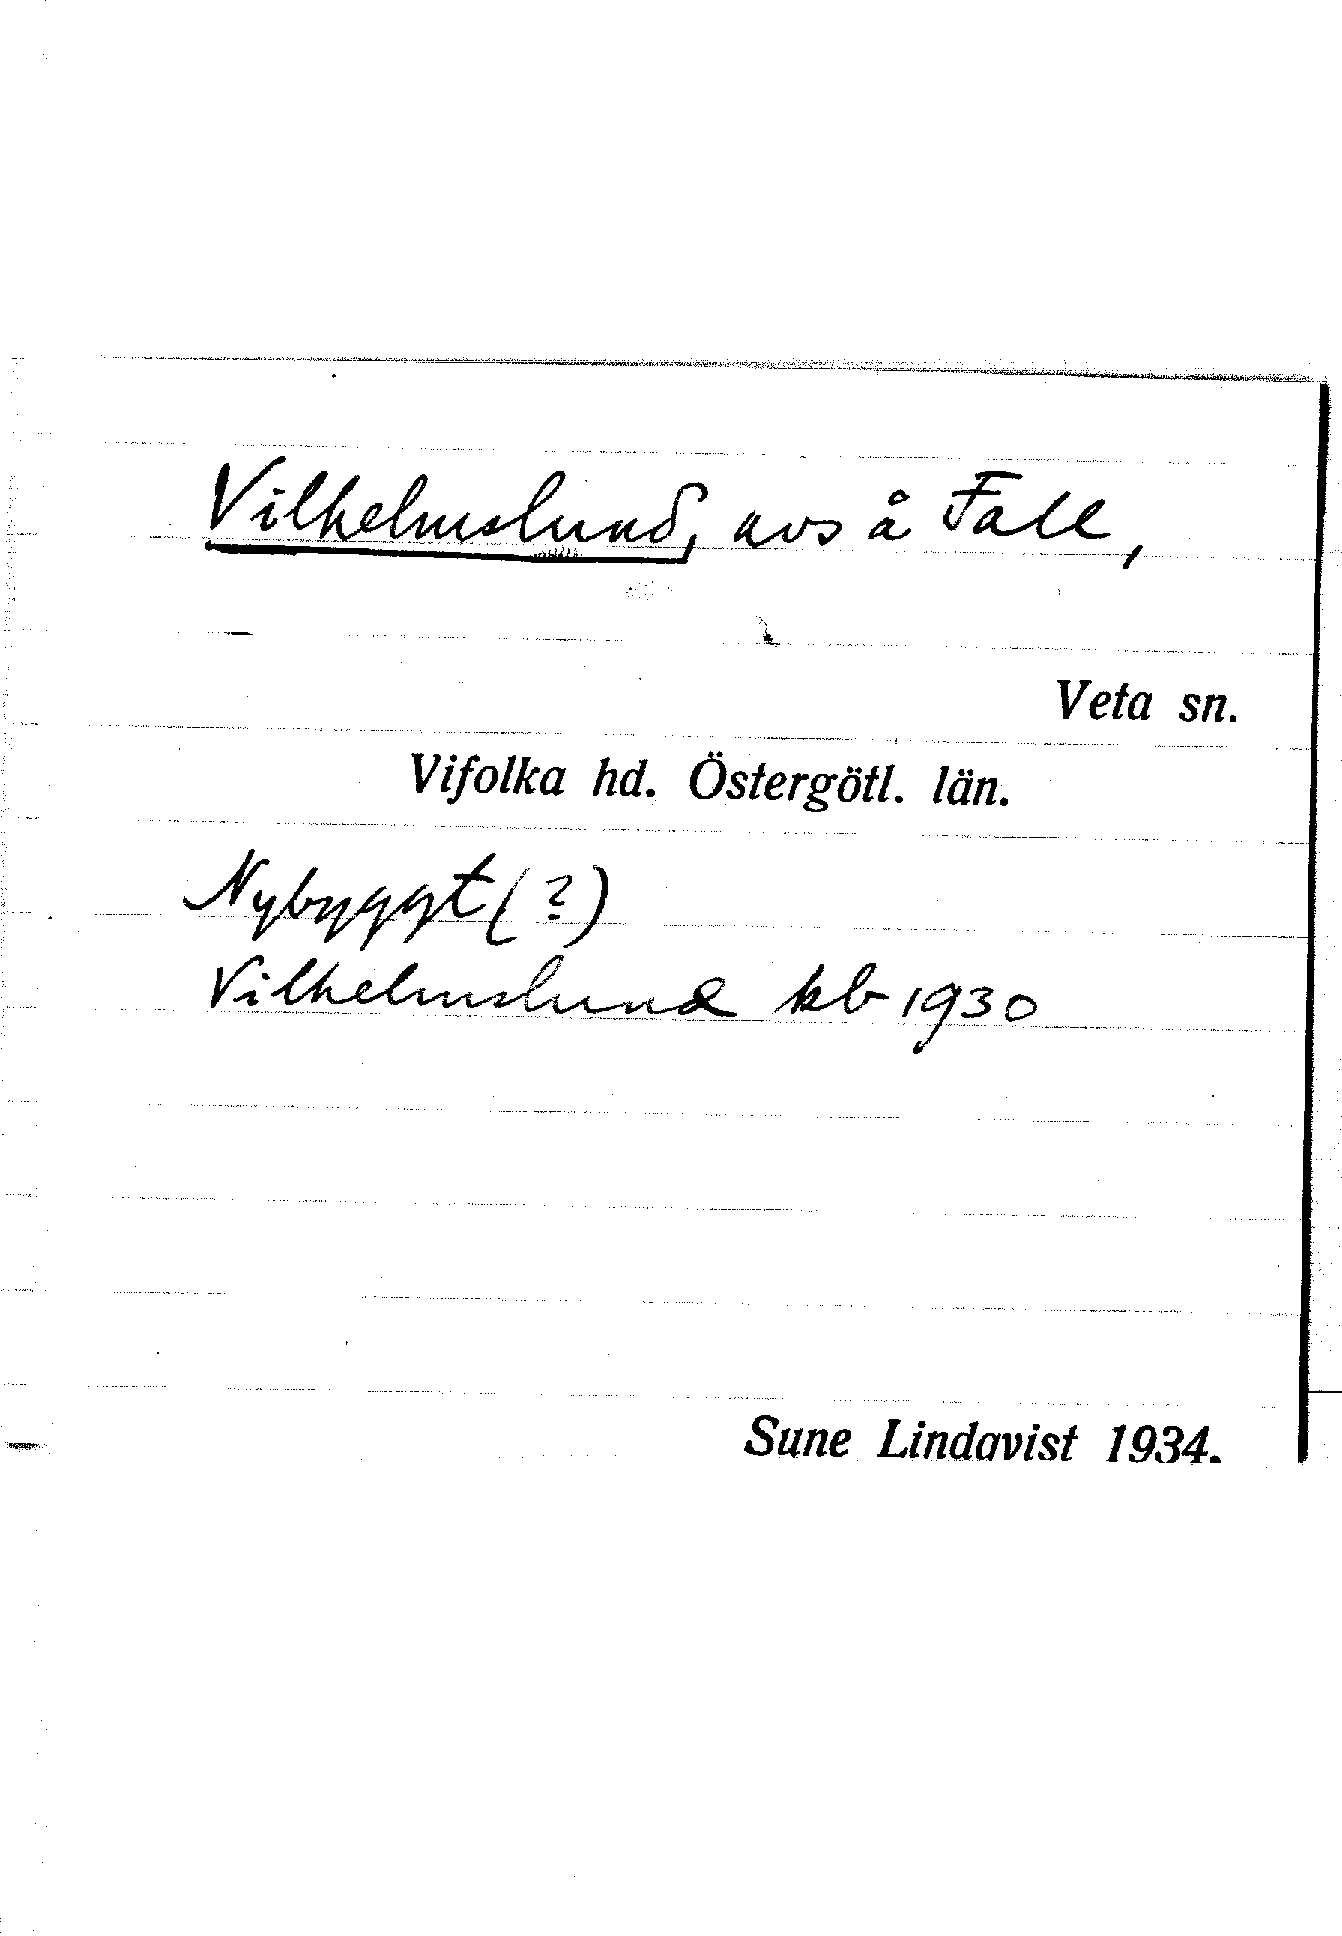 Vilhelmslund, avs å Fall,
Veta sn.
Vifolka hd. Östergötl. län.
Nybyggt (?)
Vilhelmslund kb 1930
Sune Lindqvist 1934.